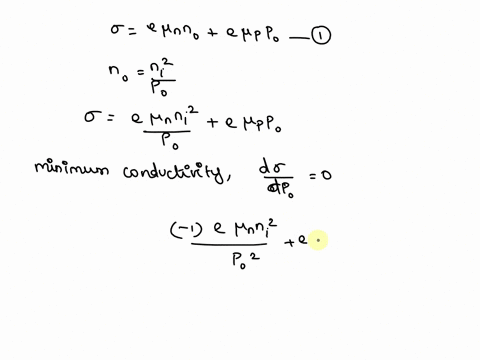 σ = e μₙ n₀ + e μₚ P₀ — ①
n₀ = nᵢ²/P₀
σ = e μₙ nᵢ²/P₀ + e μₚ P₀
minimum conductivity, dσ/dP₀ = 0
(-1) e μₙ nᵢ²/P₀² + e